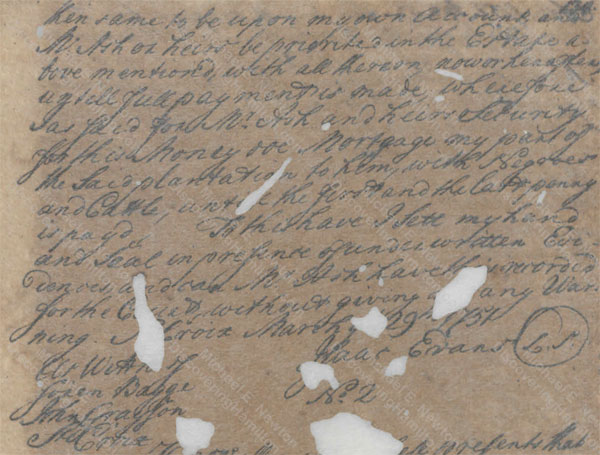 then same to be upon my own Account, and
Mr Ash or heirs be priorited in the Estate a-
bove mentioned, with all thereon now or hereafter
untill full payment is made, wherefore
as said for Mr Ash and heirs Security
for this Money doe Mortgage my part of
the said plantation to him, with Negroes
and Cattle, untill the first and the last penny
is payd. To this have I sett my hand
and Seal in presence of underwritten Evi-
dences, and can Mr Ash have this recorded
for the Court, without giving any War-
ning. St Croix March 29 1751
Isaac Evans L.S.
As Wittn
Søren Bagge
Ann Grayson No. 2
St Croix
presents that